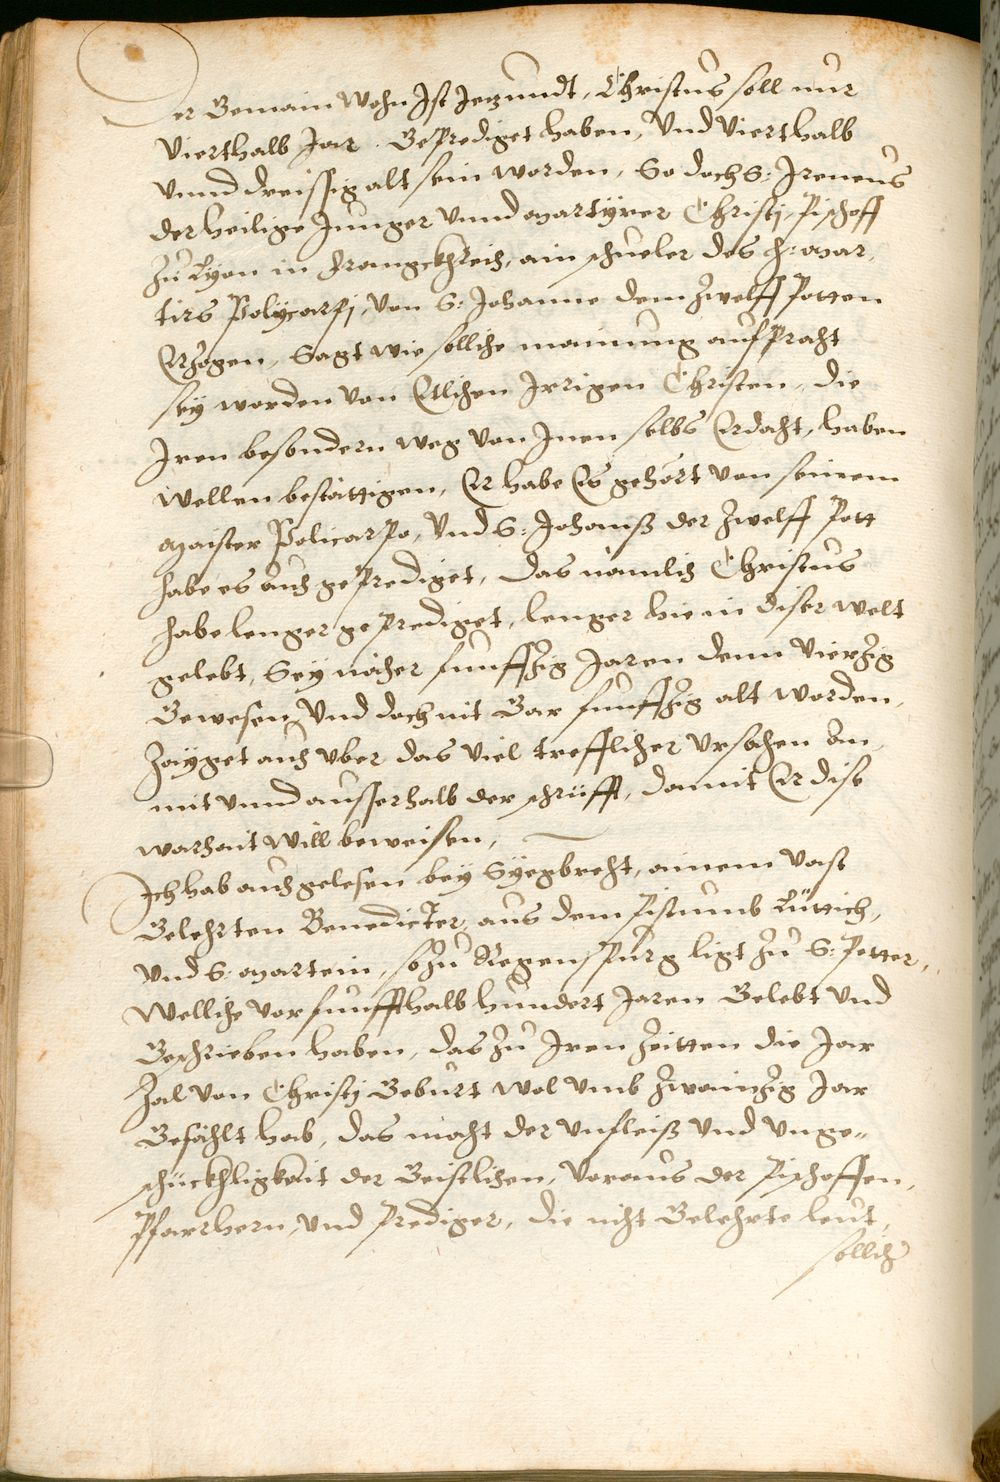 Der Gemain Wohn Ist Jezundt, Christus soll nur
Vierthalb Jar Geprediget haben, Und Vierthalb
Unnd dreissig alt sein worden, So doch S: Ireneus
der heilige Junger unnd Martÿrer Christj, Pischoff
Zu Lÿon in Franngckhreich, ain schueler des h: Mar,
tirs Polÿcarpj, Von S: Johanne dem Zwelff Potten
Erzogen, Sagt wie solliche mainung aufpracht
seÿ worden von Etlichen Irrigen Christen, die
Iren besondern weg von Inen selbs Erdacht, haben
wellen bestättigen, Er habe Es gehört von seinem
Maister Policarpo, Und S: Johanß der Zwelff Pott
habe es auch geprediget, das nämlich Christus
habe lenger geprediget, lenger hie in diser welt
gelebt, Seÿ näher funffzig Jaren denn Vierzig
Gewesen, Und doch nit Gar funffzig alt worden,
Zayget auch uber das viel trefflicher Ursachen an,
mit unnd ausserhalb der schrüfft, damit Er dise
warhait Will beweisen,
Ich hab auch gelesen beÿ Sÿegbrecht, ainem Vast
Gelehrten Benedicter, aus dem Pistumb Lüttich,
Und S: Martein, so zu Regenspurg ligt zu S: Petter,
Welliche vor funffthalb hundert Jaren Gelebt Und
Geschrieben haben, das zu Iren Zeitten die Jar
Zal von Christj Geburt wol umb Zwainzig Jar
Gefählt hab, das macht der Unfleiß Und Unge-
schückhligkait der Geistlichen, Voraus der Pischoffen,
Pfarrhern, Und Prediger, die nicht Gelehrte leut,
sollich